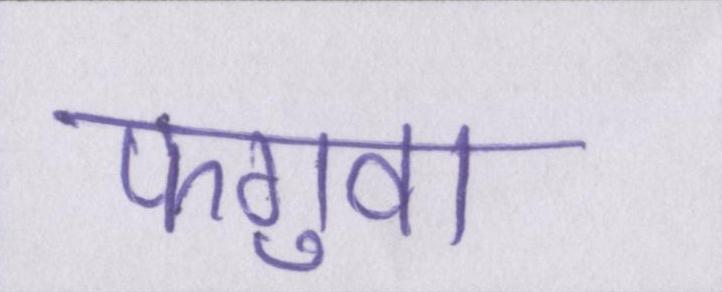 फगुवा